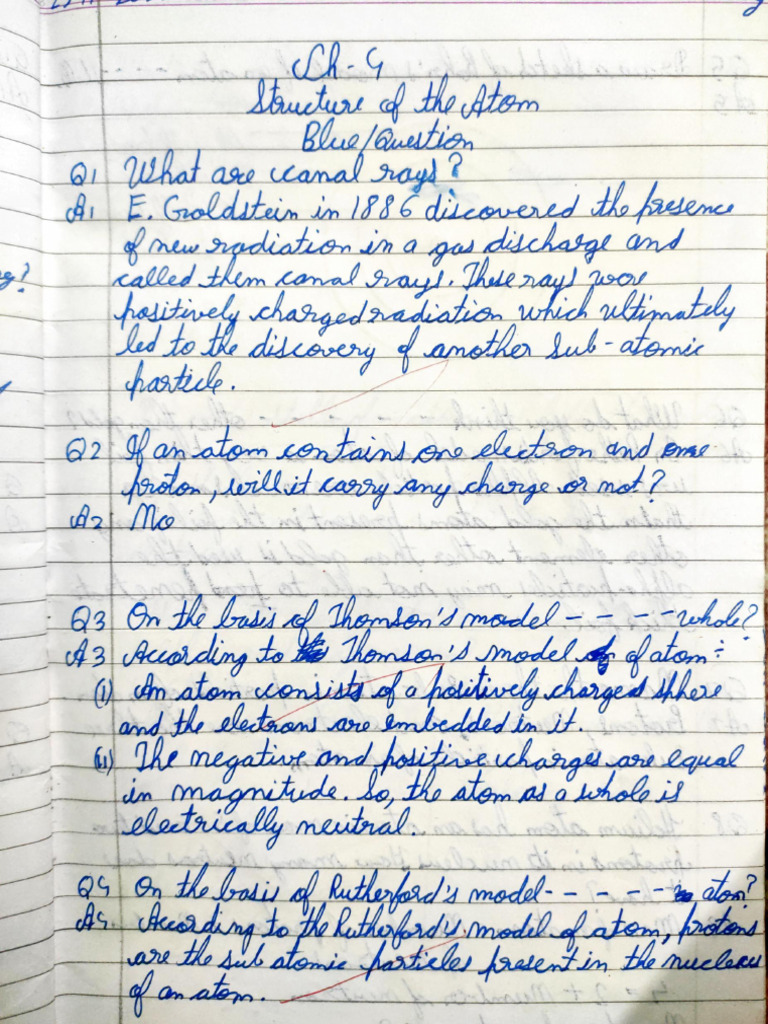 Ch-4
Structure of the Atom
Blue/Question
Q1 What are canal rays?
A1 E. Goldstein in 1886 discovered the presence
of new radiation in a gas discharge and
called them canal rays. These rays were
positively charged radiation which ultimately
led to the discovery of another Sub-atomic
particle.
Q2 If an atom contains one electron and one
proton, will it carry any charge or not?
A2 No
Q3 On the basis of Thomson's model - - - - whole?
A3 According to Thomson's model of atom:
(i) An atom consists of a positively charged sphere
and the electrons are embedded in it.
(ii) The negative and positive charges are equal
in magnitude. So, the atom as a whole is
electrically neutral.
Q4 On the basis of Rutherford's model - - - - - atom?
A4 According to the Rutherford's model of atom, protons
are the sub atomic particles present in the nucleus
of an atom.